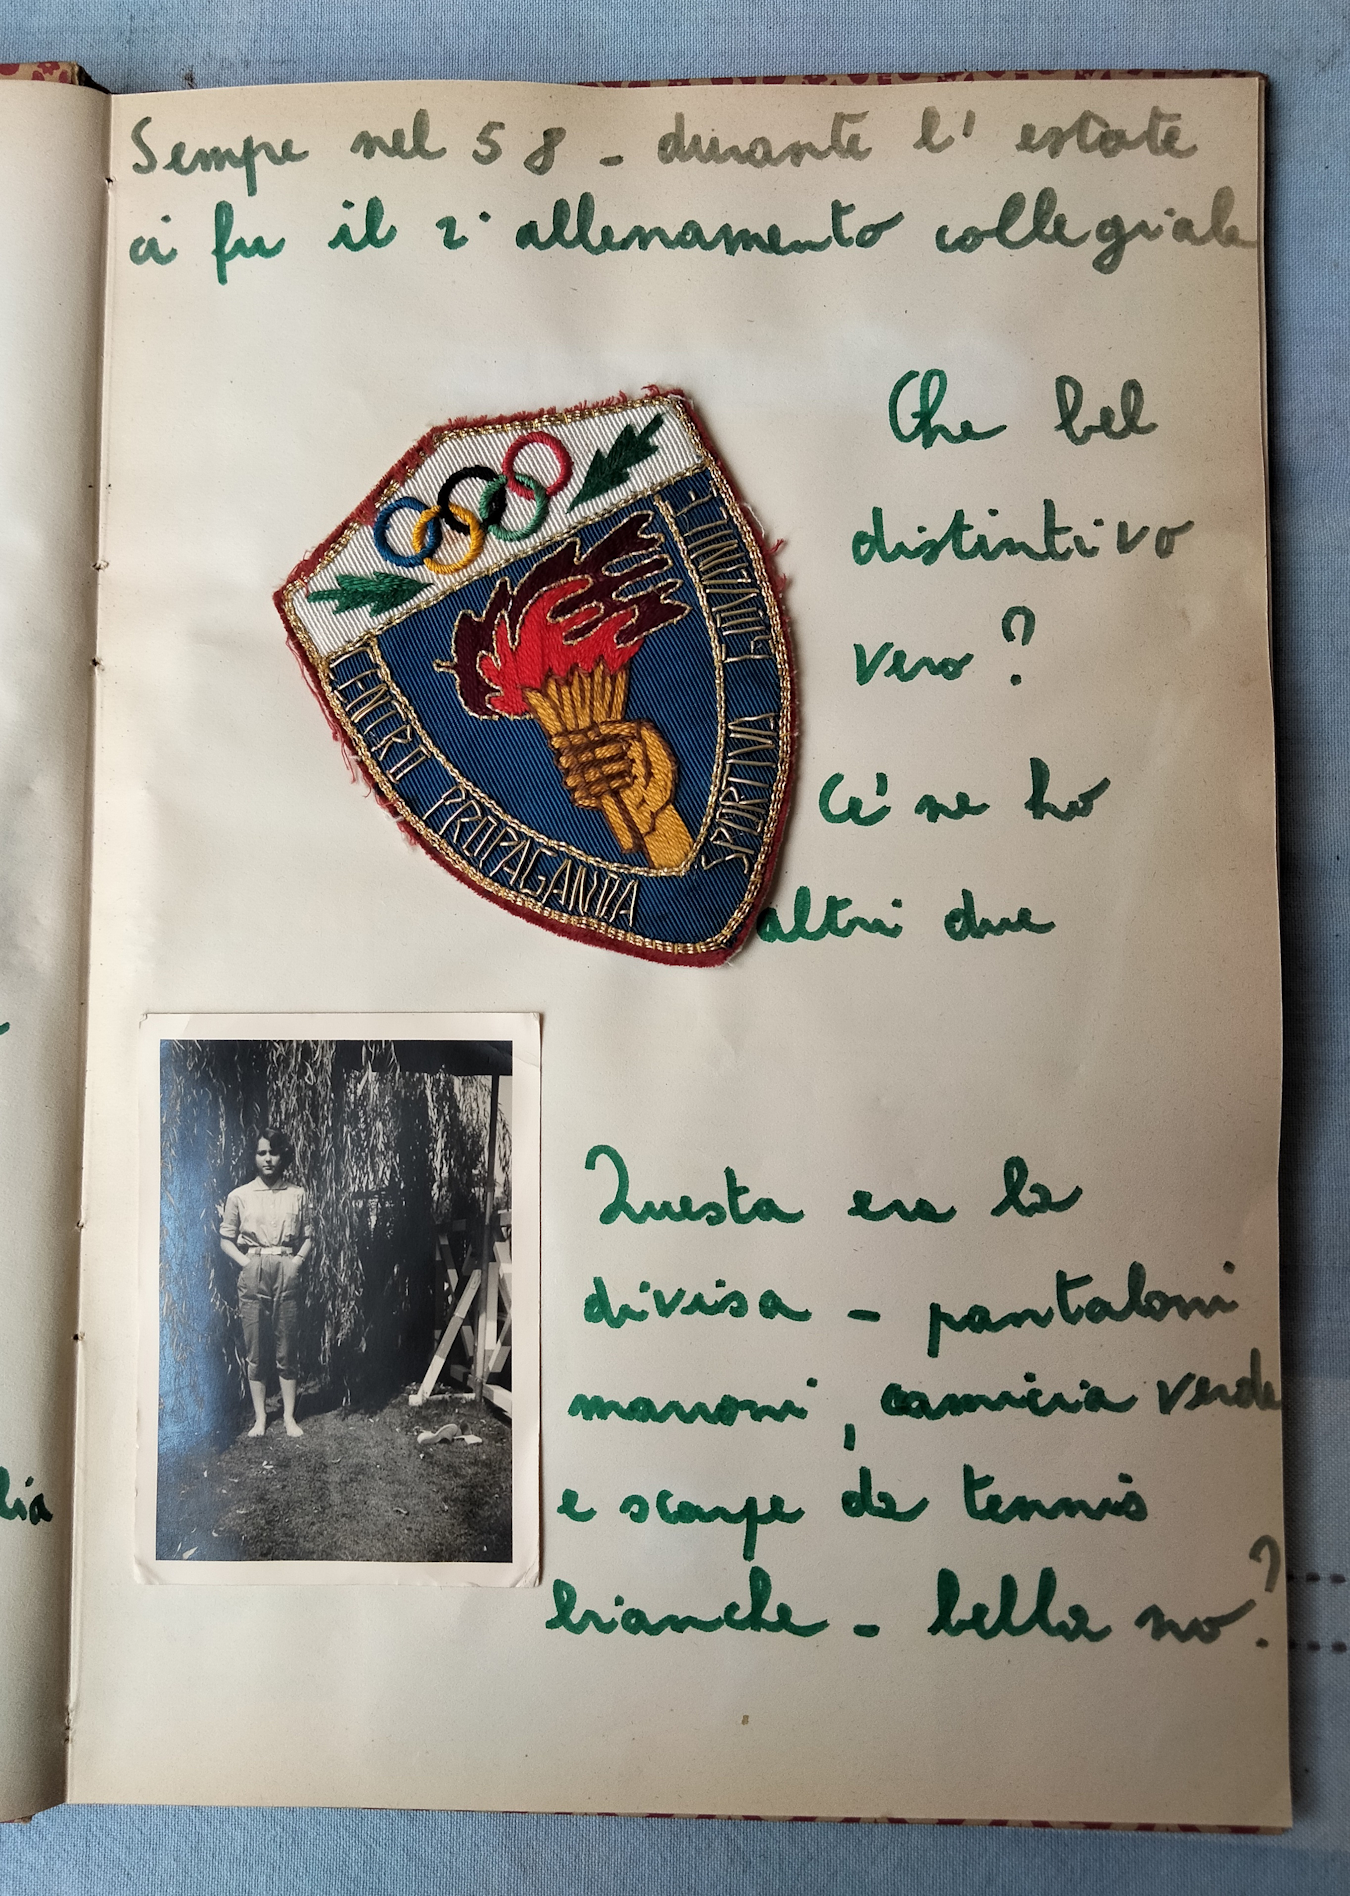 Sempre nel 58 - durante l' estate
ci fu il 2° allenamento collegiale
Che bel
distintivo
vero?
Ce' ne ho
altri due
CENTRO PROPAGANDA SPORTIVA GIOVANILE
Questa era la
divisa - pantaloni
marroni, camicia verde
e scarpe da tennis
bianche - bella no?
lia